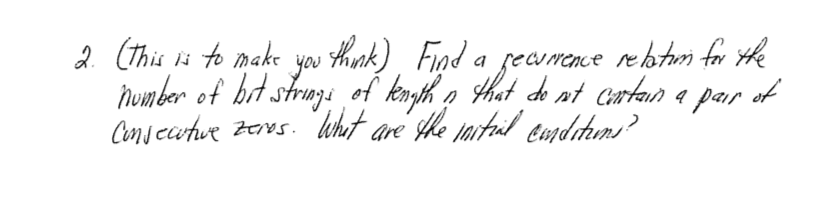 2. (This is to make you think) Find a recurrence relation for the
number of bit strings of length n that do not contain a pair of
Consecutive zeros. What are the initial conditions?